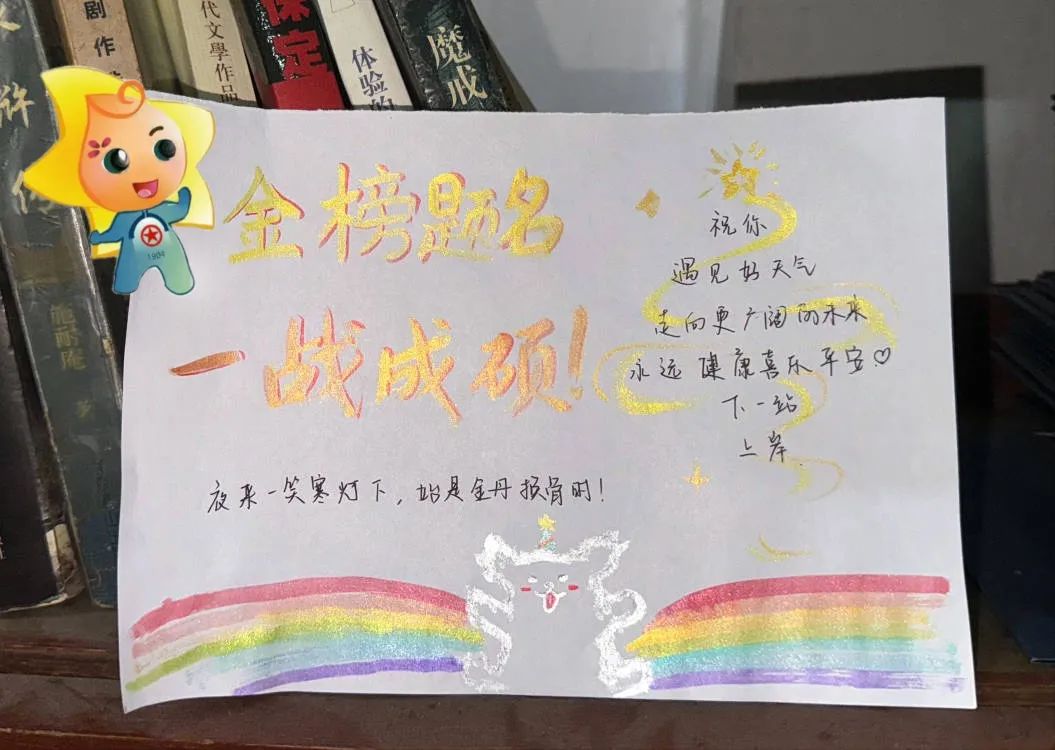 剧作
代文學作品
保定
体验的
魔戒
浒
施耐庵
1904
金榜题名
一战成硕!
祝你
遇见好天气
走向更广阔的未来
永远健康喜乐平安♡
下一站
上岸
夜来一笑寒灯下，始是金丹换骨时！